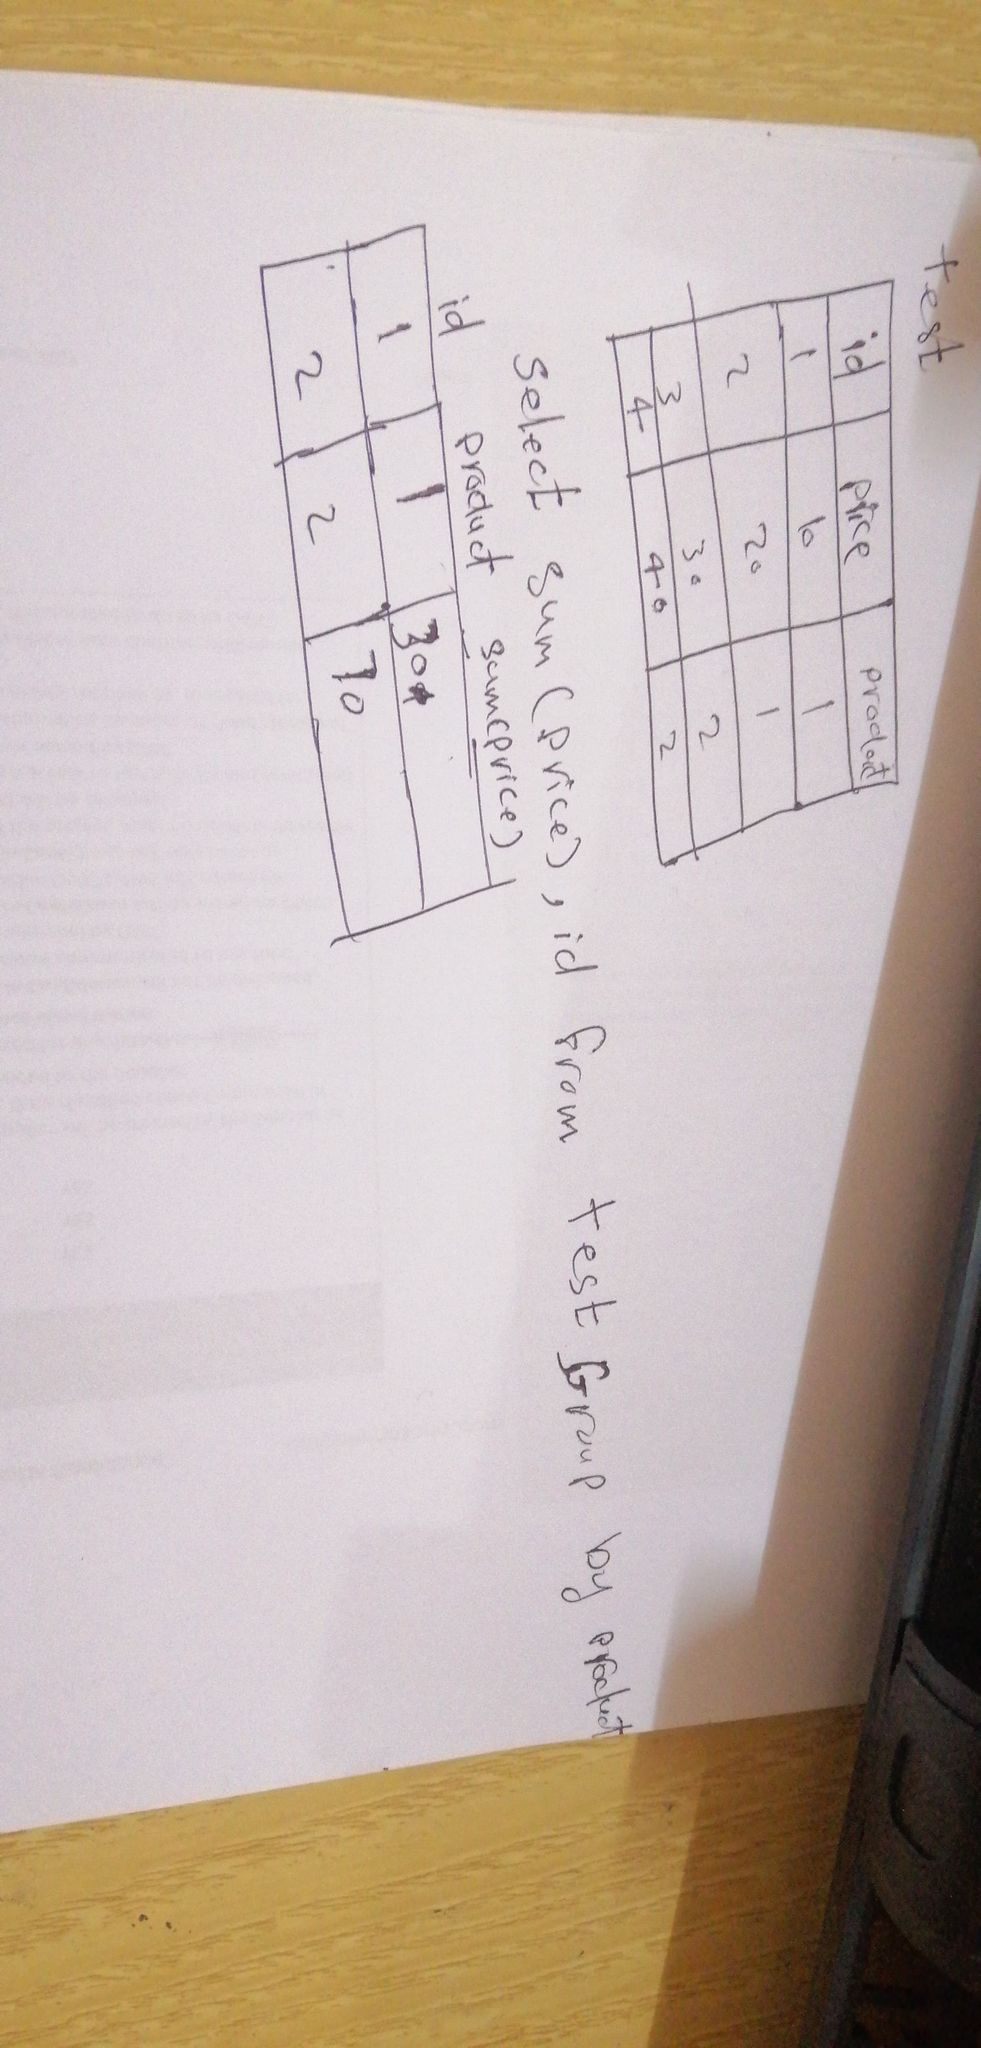 test
id price product
1 10 1
2 20 1
3 30 2
4 40 2
select sum (price), id from test Group by product
id product sum(price)
1 1 30
2 2 70